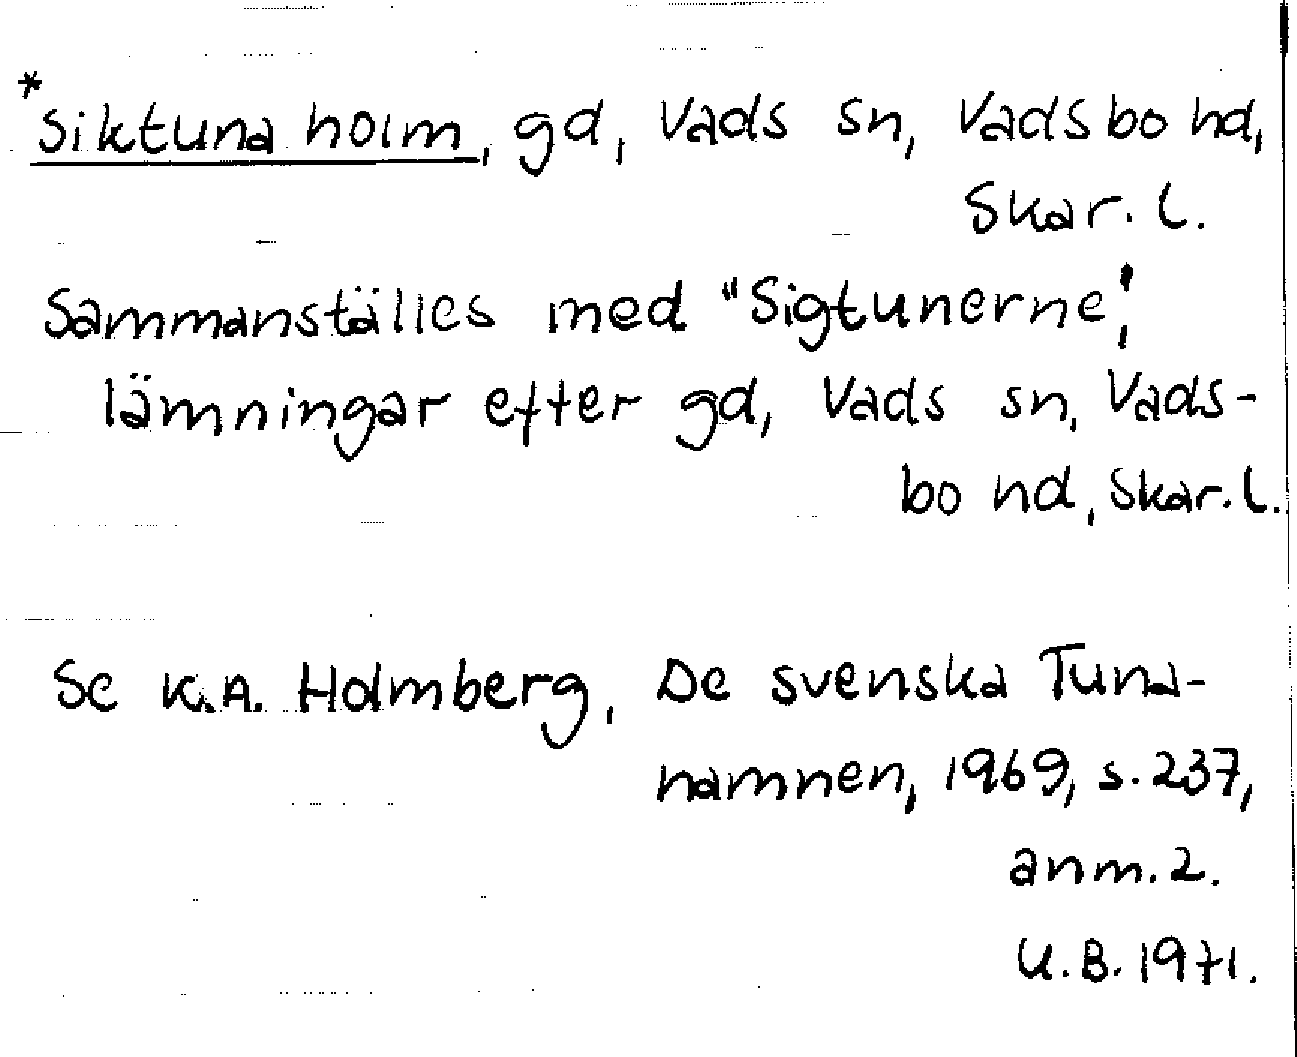 *Siktuna holm, gd, Vads sn, Vadsbo hd,
Skar. l.
Sammanställes med "Sigtunerne",
lämningar efter gd, Vads sn, Vads-
bo hd, Skar. l.
Se K.A. Holmberg, De svenska Tuna-
namnen, 1969, s. 237,
anm. 2.
U.B. 1971.